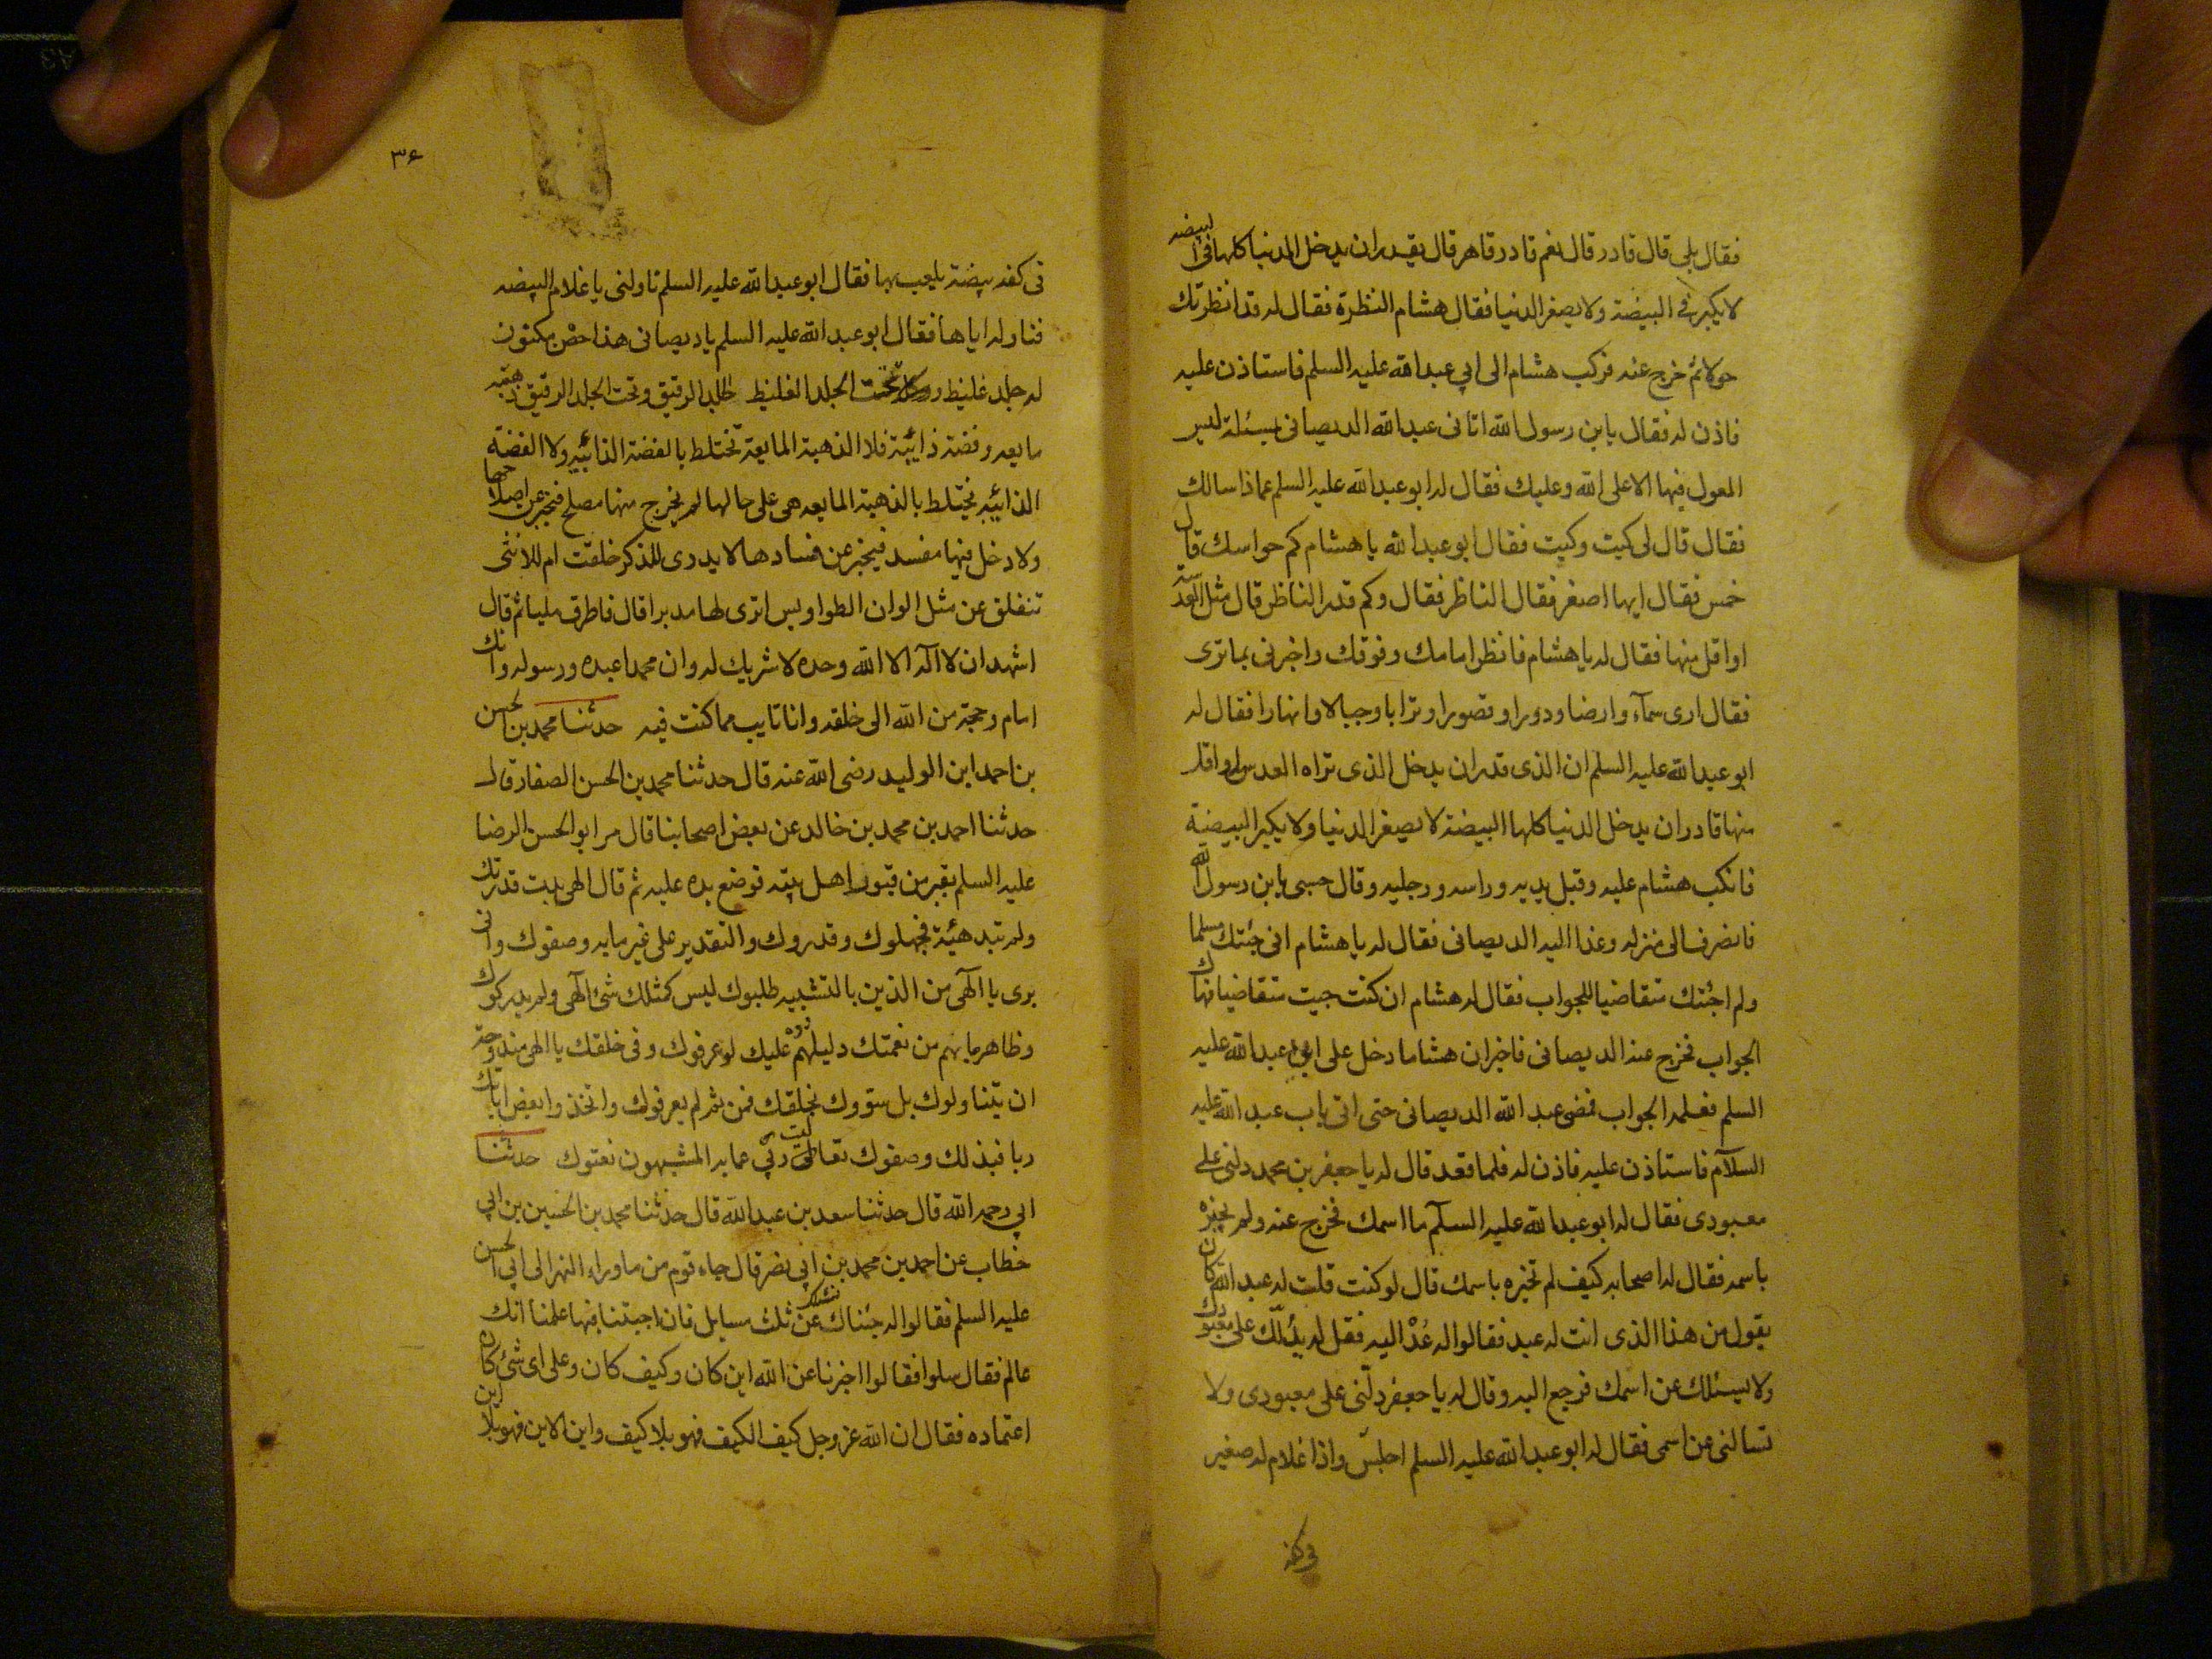 فقال بلى قال قادر قال نعم قادر قاهر قال يقدر ان يدخل الدنيا كلها فى البيضه
لا يكبر فى البيضة ولا يصغر الدنيا فقال هشام النظرة فقال له قد انظرتك
حولا ثم خرج عنه فركب هشام الى ابي عبد الله عليه السلم فاستاذن عليه
فاذن له فقال يابن رسول الله اتانى عبد الله الديصانى بمسئلة ليس
المعول فيها الا على الله وعليك فقال له ابو عبد الله عليه السلم عماذا سالك
فقال قال لى كيت وكيت فقال ابو عبد الله يا هشام كم حواسك قال
خمس فقال ايها اصغر فقال الناظر فقال وكم قدر الناظر قال مثل العدسة
او اقل منها فقال له يا هشام فانظر امامك وفوقك واخبرنى بما ترى
فقال ارى سمآء وارضا ودورا وقصورا وترابا وجبالا وانهارا فقال له
ابو عبد الله عليه السلم ان الذى قدر ان يدخل الذى تراه العدسه او اقل
منها قادر ان يدخل الدنيا كلها البيضة لا يصغر الدنيا ولا يكبر البيضة
فانكب هشام عليه وقبل يديه وراسه ورجليه وقال حسبى يابن رسول الله
فانصرف الى منزله وغدا اليه الديصانى فقال له يا هشام انى جئتك مسلما
ولم اجئتك متقاضيا للجواب فقال له هشام ان كنت جيت متقاضيا فهاك
الجواب فخرج عنه الديصانى فاخبر ان هشاما دخل على ابى عبد الله عليه
السلم فعلمه الجواب فمضى عبد الله الديصانى حتى اتى باب عبد الله عليه
السلام فاستاذن عليه فاذن له فلما قعد قال له يا جعفر بن محمد دلنى على
معبودى فقال له ابو عبد الله عليه السلم ما اسمك فخرج عنه ولم يخبره
باسمه فقال له اصحابه كيف لم تخبره باسمك قال لو كنت قلت له عبد الله كان
يقول من هذا الذى انت له عبد فقالوا له عُدْ اليه فقل له يدُلّك على معبودك
ولا يسئلك عن اسمك فرجع اليه وقال له يا جعفر دلّنى على معبودى ولا
تسالنى عن اسمى فقال له ابو عبد الله عليه السلم اجلس واذا غلام له صغير
فى كفه
٣۶
فى كفه بيضة يلعب بها فقال ابو عبد الله عليه السلم ناولنى يا غلام البيضه
فناوله اياها فقال ابو عبد الله عليه السلم يا ديصانى هذا حصن مكنون
له جلد غليظ وتحت الجلد الغليظ جلد الرقيق وتحت الجلد الرقيق ذهبة
مايعه وفضة ذائبة فلا الذهبة المايعة تختلط بالفضة الذائبه ولا الفضة
الذائبه تختلط بالذهبة المايعه هى على حالها لم يخرج منها مصلح فيخبر عن اصلاحها
ولا دخل فيها مفسد فيخبر عن فسادها لا يدرى للذكر خلقت ام للانثى
تنفلق عن مثل الوان الطواويس اترى لها مدبرا قال فاطرق مليا ثم قال
اشهد ان لا اله الا الله وحده لا شريك له وان محمدا عبده ورسوله وانك
امام وحجة من الله الى خلقه وانا تايب مما كنت فيه حدثنا محمد بن الحسن
بن احمد ابن الوليد رضى الله عنه قال حدثنا محمد بن الحسن الصفار قال
حدثنا احمد بن محمد بن خالد عن بعض اصحابنا قال مر ابو الحسن الرضا
عليه السلم بقبر من قبور اهل بيته فوضع يده عليه ثم قال الهى بدت قدرتك
ولم تبد هيئة فجهلوك وقدروك والتقدير على غير ما به وصفوك وانى
برى يا الهى من الذين بالتشبيه طلبوك ليس كمثلك شئ الهى ولم يدركوك
وظاهر ما بهم من نعمتك دليلهم عليك لو عرفوك وفى خلقك يا الهى مندوحة
ان يتناولوك بل سووك بخلقك فمن ثم لم يعرفوك واتخذوا بعض اياتك
ربا فبذلك وصفوك تعاليت ربّي عما به المشبهون نعتوك حدثنا
ابى رحمه الله قال حدثنا سعد بن عبد الله قال حدثنا محمد بن الحسين بن ابي
خطاب عن احمد بن محمد بن ابي نصر قال جاء قوم من ماوراء النهر الى ابي الحسن
عليه السلم فقالوا له جئناك نسئلك عن ثلث مسايل فان اجبتنا فيها علمنا انك
عالم فقال سلوا فقالوا اخبرنا عن الله اين كان وكيف كان وعلى اى شئ كان
اعتماده فقال ان الله عز وجل كيف الكيف فهو بلا كيف واين الاين فهو بلا اين